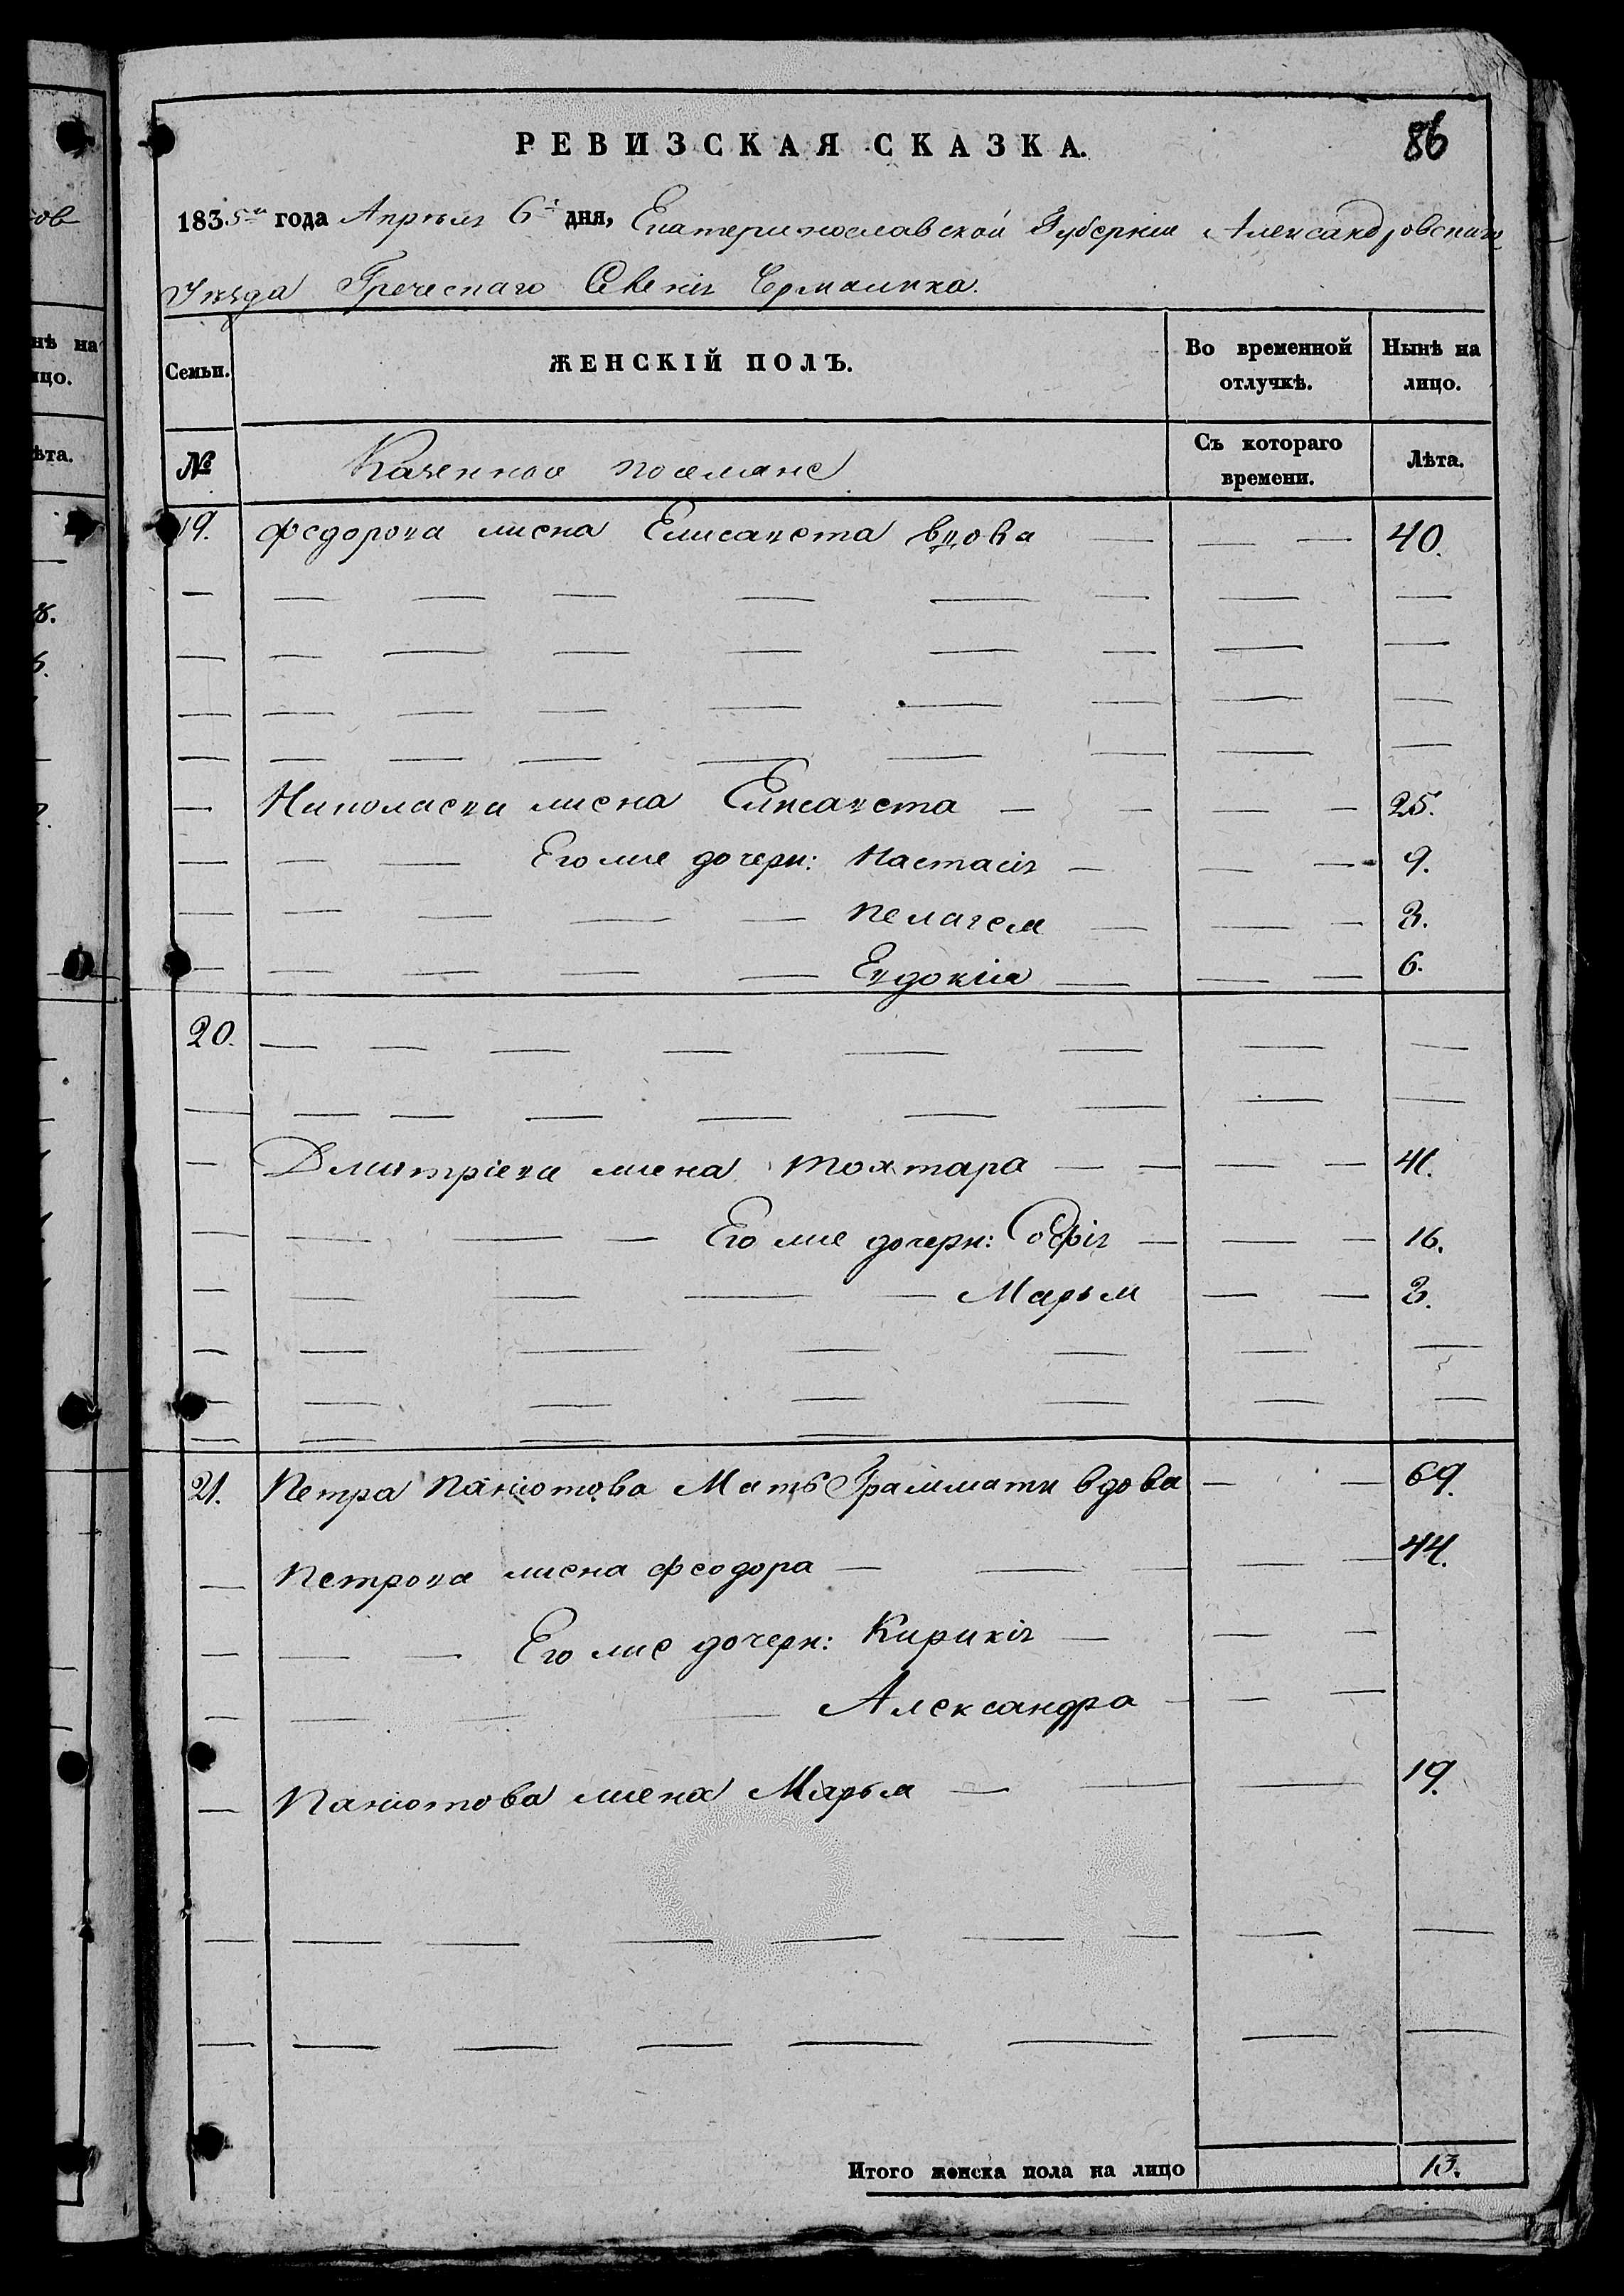 РЕВИЗСКАЯ СКАЗКА.
86
1835го года Апрѣля 6го дня, Екатеринославской Губерніи Александровскаго
Уѣзда Греческаго Селенія
Семьи.
ЖЕНСКІЙ ПОЛЪ.
Во временной отлучкѣ.
Нынѣ на лицо.
№
Казенные поселяне
Съ котораго времени.
Лѣта.
19. Федорова жена Елисавета вдова — — — 40.
Николаева жена Елисавета — — — — 25.
— — — Его же дочери: Настасія — — — 9.
— — — — — Пелагея — — — 3.
— — — — — Евдокія — — — 6.
20. — — — — — — — —
— Дмитріева жена Тохтара — — — — 41.
— — — — Его же дочери: Софія — — — 16.
— — — — — Марья — — 3.
21. Петра Панютова Мать Граммати вдова — — 69.
— Петрова жена Феодора — — — — — 44.
— — — Его же дочери: Кирикія — — —
— — — — Александра — — —
— Панютова жена Марья — — — 19.
Итого женска пола на лицо 13.
нѣ на
ицо.
ѣта.
ов
8.